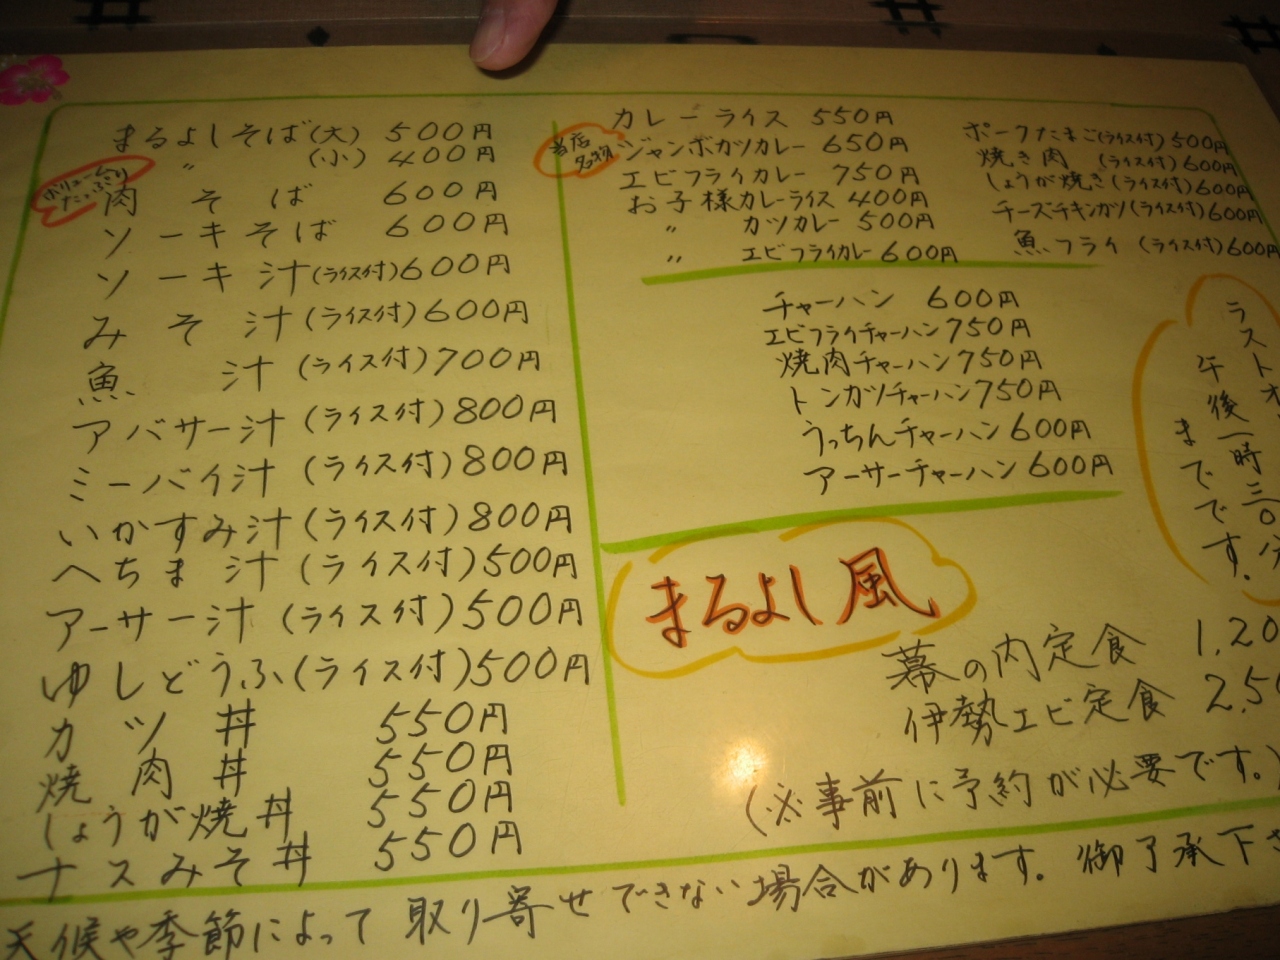 まるよしそば(大) 500円
〃 (小) 400円
ボリュームたっぷり
肉そば 600円
ソーキそば 600円
ソーキ汁(ライス付)600円
みそ汁(ライス付)600円
魚汁(ライス付)700円
アバサー汁(ライス付)800円
ミーバイ汁(ライス付)800円
いかすみ汁(ライス付)800円
へちま汁(ライス付)500円
アーサー汁(ライス付)500円
ゆしどうふ(ライス付)500円
カツ丼 550円
焼肉丼 550円
しょうが焼丼 550円
ナスみそ丼 550円
カレーライス 550円
当店名物
ジャンボカツカレー 650円
エビフライカレー 750円
お子様カレーライス 400円
〃 カツカレー 500円
〃 エビフライカレー 600円
ポークたまご(ライス付)500円
焼き肉 (ライス付)600円
しょうが焼き(ライス付)600円
チーズチキンカツ(ライス付)600円
魚フライ(ライス付)600円
チャーハン 600円
エビフライチャーハン750円
焼肉チャーハン750円
トンカツチャーハン750円
うっちんチャーハン600円
アーサーチャーハン600円
ラストオ
午後一時三〇分
までです。
まるよし風
幕の内定食 1,20
伊勢エビ定食 2,50
(※事前に予約が必要です。)
天候や季節によって取り寄せできない場合があります。御了承下さ